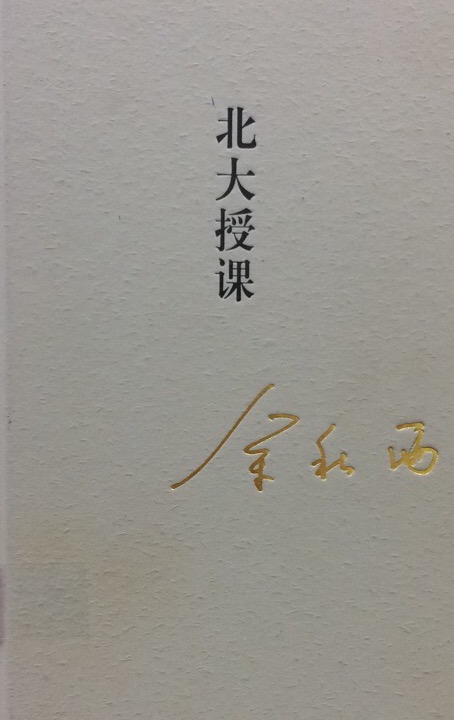 北大授课
余秋雨